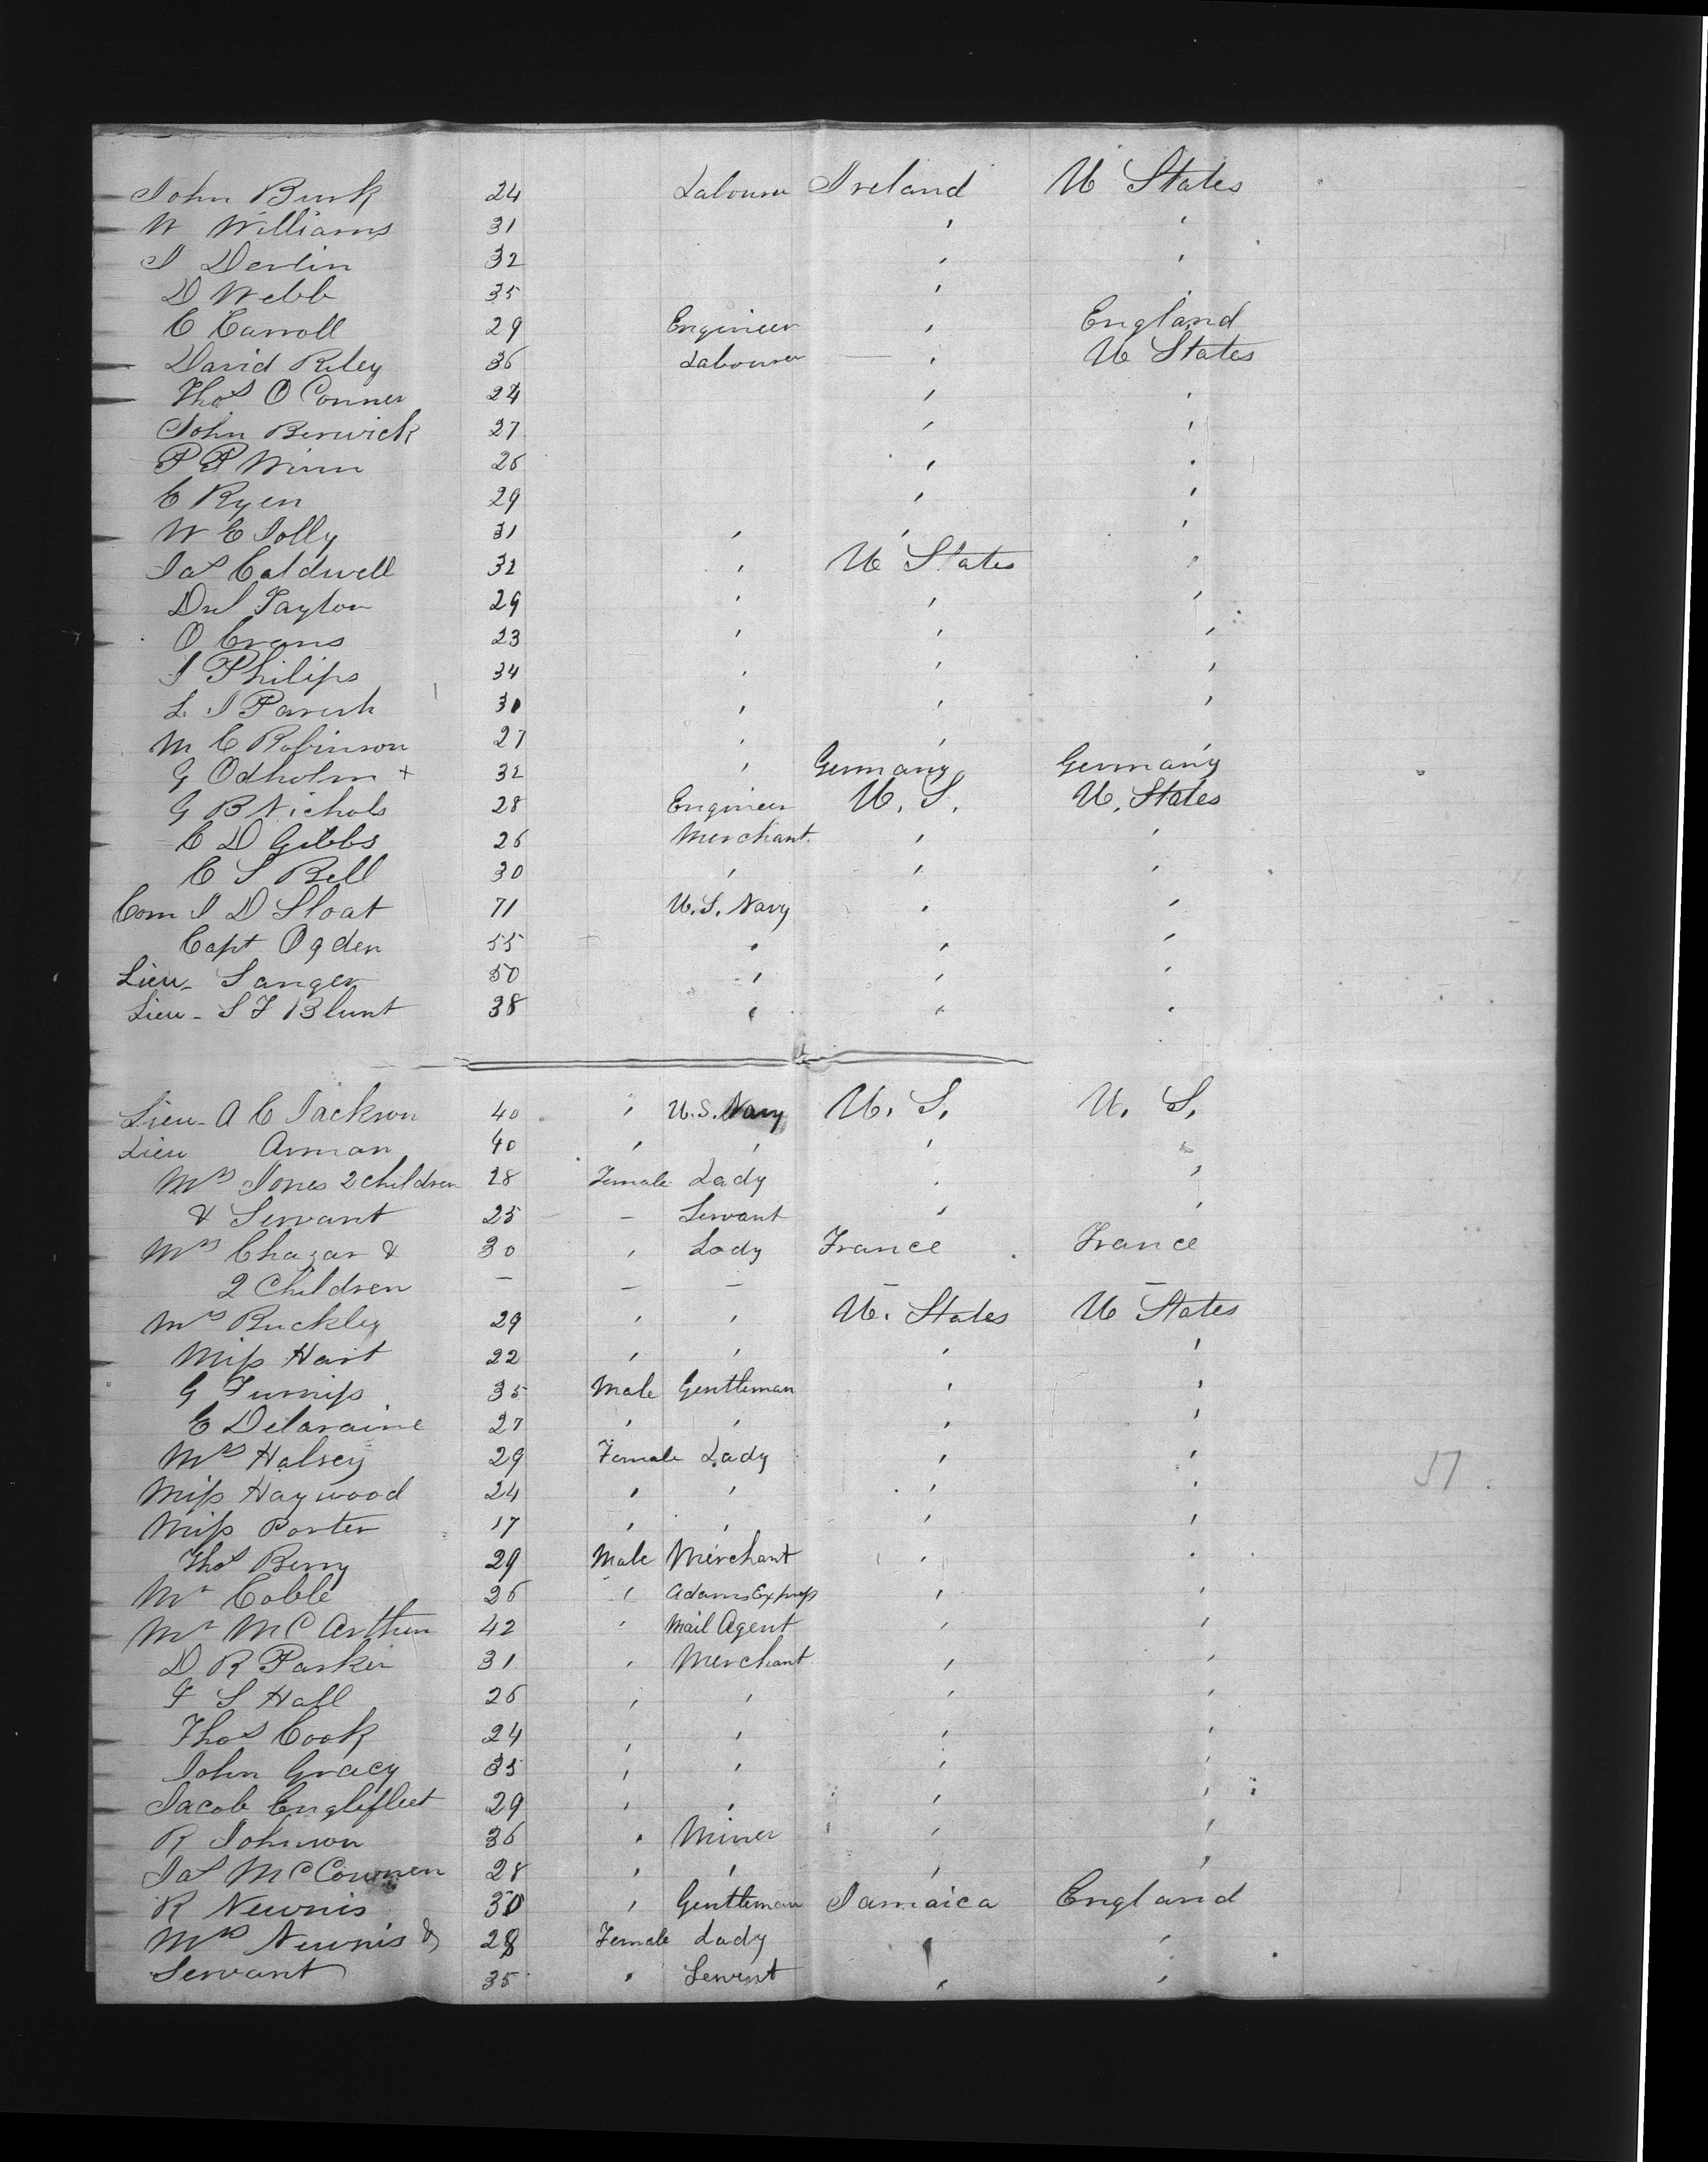 John Burk 24 Labourer Ireland U States
W Williams 31 " "
J Devlin 32 " "
D Webb 35 " "
C Carroll 29 Engineer " England
David Riley 36 Labourer — " U States
Thos O Conner 24 " "
John Berwick 27 " "
P P Winn 26 " "
C Ryen 29 " "
W C Jolly 31 " " "
Jas Caldwell 32 " U States "
Danl Taylor 29 " " "
O Evans 23 " " "
J Philips 34 " " "
L. J Parish 30 " " "
M C Robinson 27 " " "
G Odholm + 32 " Germany Germany
G B Nichols 28 Engineer U. S. U. States
C D Gibbs 26 Merchant " "
C S Bell 30 " " "
Com J D Sloat 71 U.S. Navy " "
Capt Ogden 55 " " "
Lieu- Sanger 50 " " "
Lieu- S F Blunt 38 " " "
Lieu- A C Jackson 40 " U.S. Navy U. S. U. S.
Lieu Arman 40 " " " "
Mrs Jones 2 children 28 Female Lady " "
& Servant 25 - Servant " "
Mrs Chazar & 30 " Lady France France
2 Children — — — — —
Mrs Buckley 29 " " U. States U States
Miss Hart 22 " " " "
G Furniss 35 Male Gentleman " "
E Delaraine 27 " " " "
Mrs Halsey 29 Female Lady " "
Miss Haywood 24 " " " "
Miss Porter 17 " " " "
Thos Berry 29 Male Merchant " "
Mr Coble 26 " Adams Express " "
Mr McArthur 42 " Mail Agent " "
D R Parker 31 " Merchant " "
F S Hall 26 " " " "
Thos Cook 24 " " " "
John Gracy 35 " " " "
Jacob Englefleet 29 " " " "
R Johnson 36 " Miner " "
Jas McCownen 28 " " " "
R Newnis 30 " Gentleman Jamaica England
Mrs Newnis & 28 Female Lady " "
Servant 35 " Servant " "